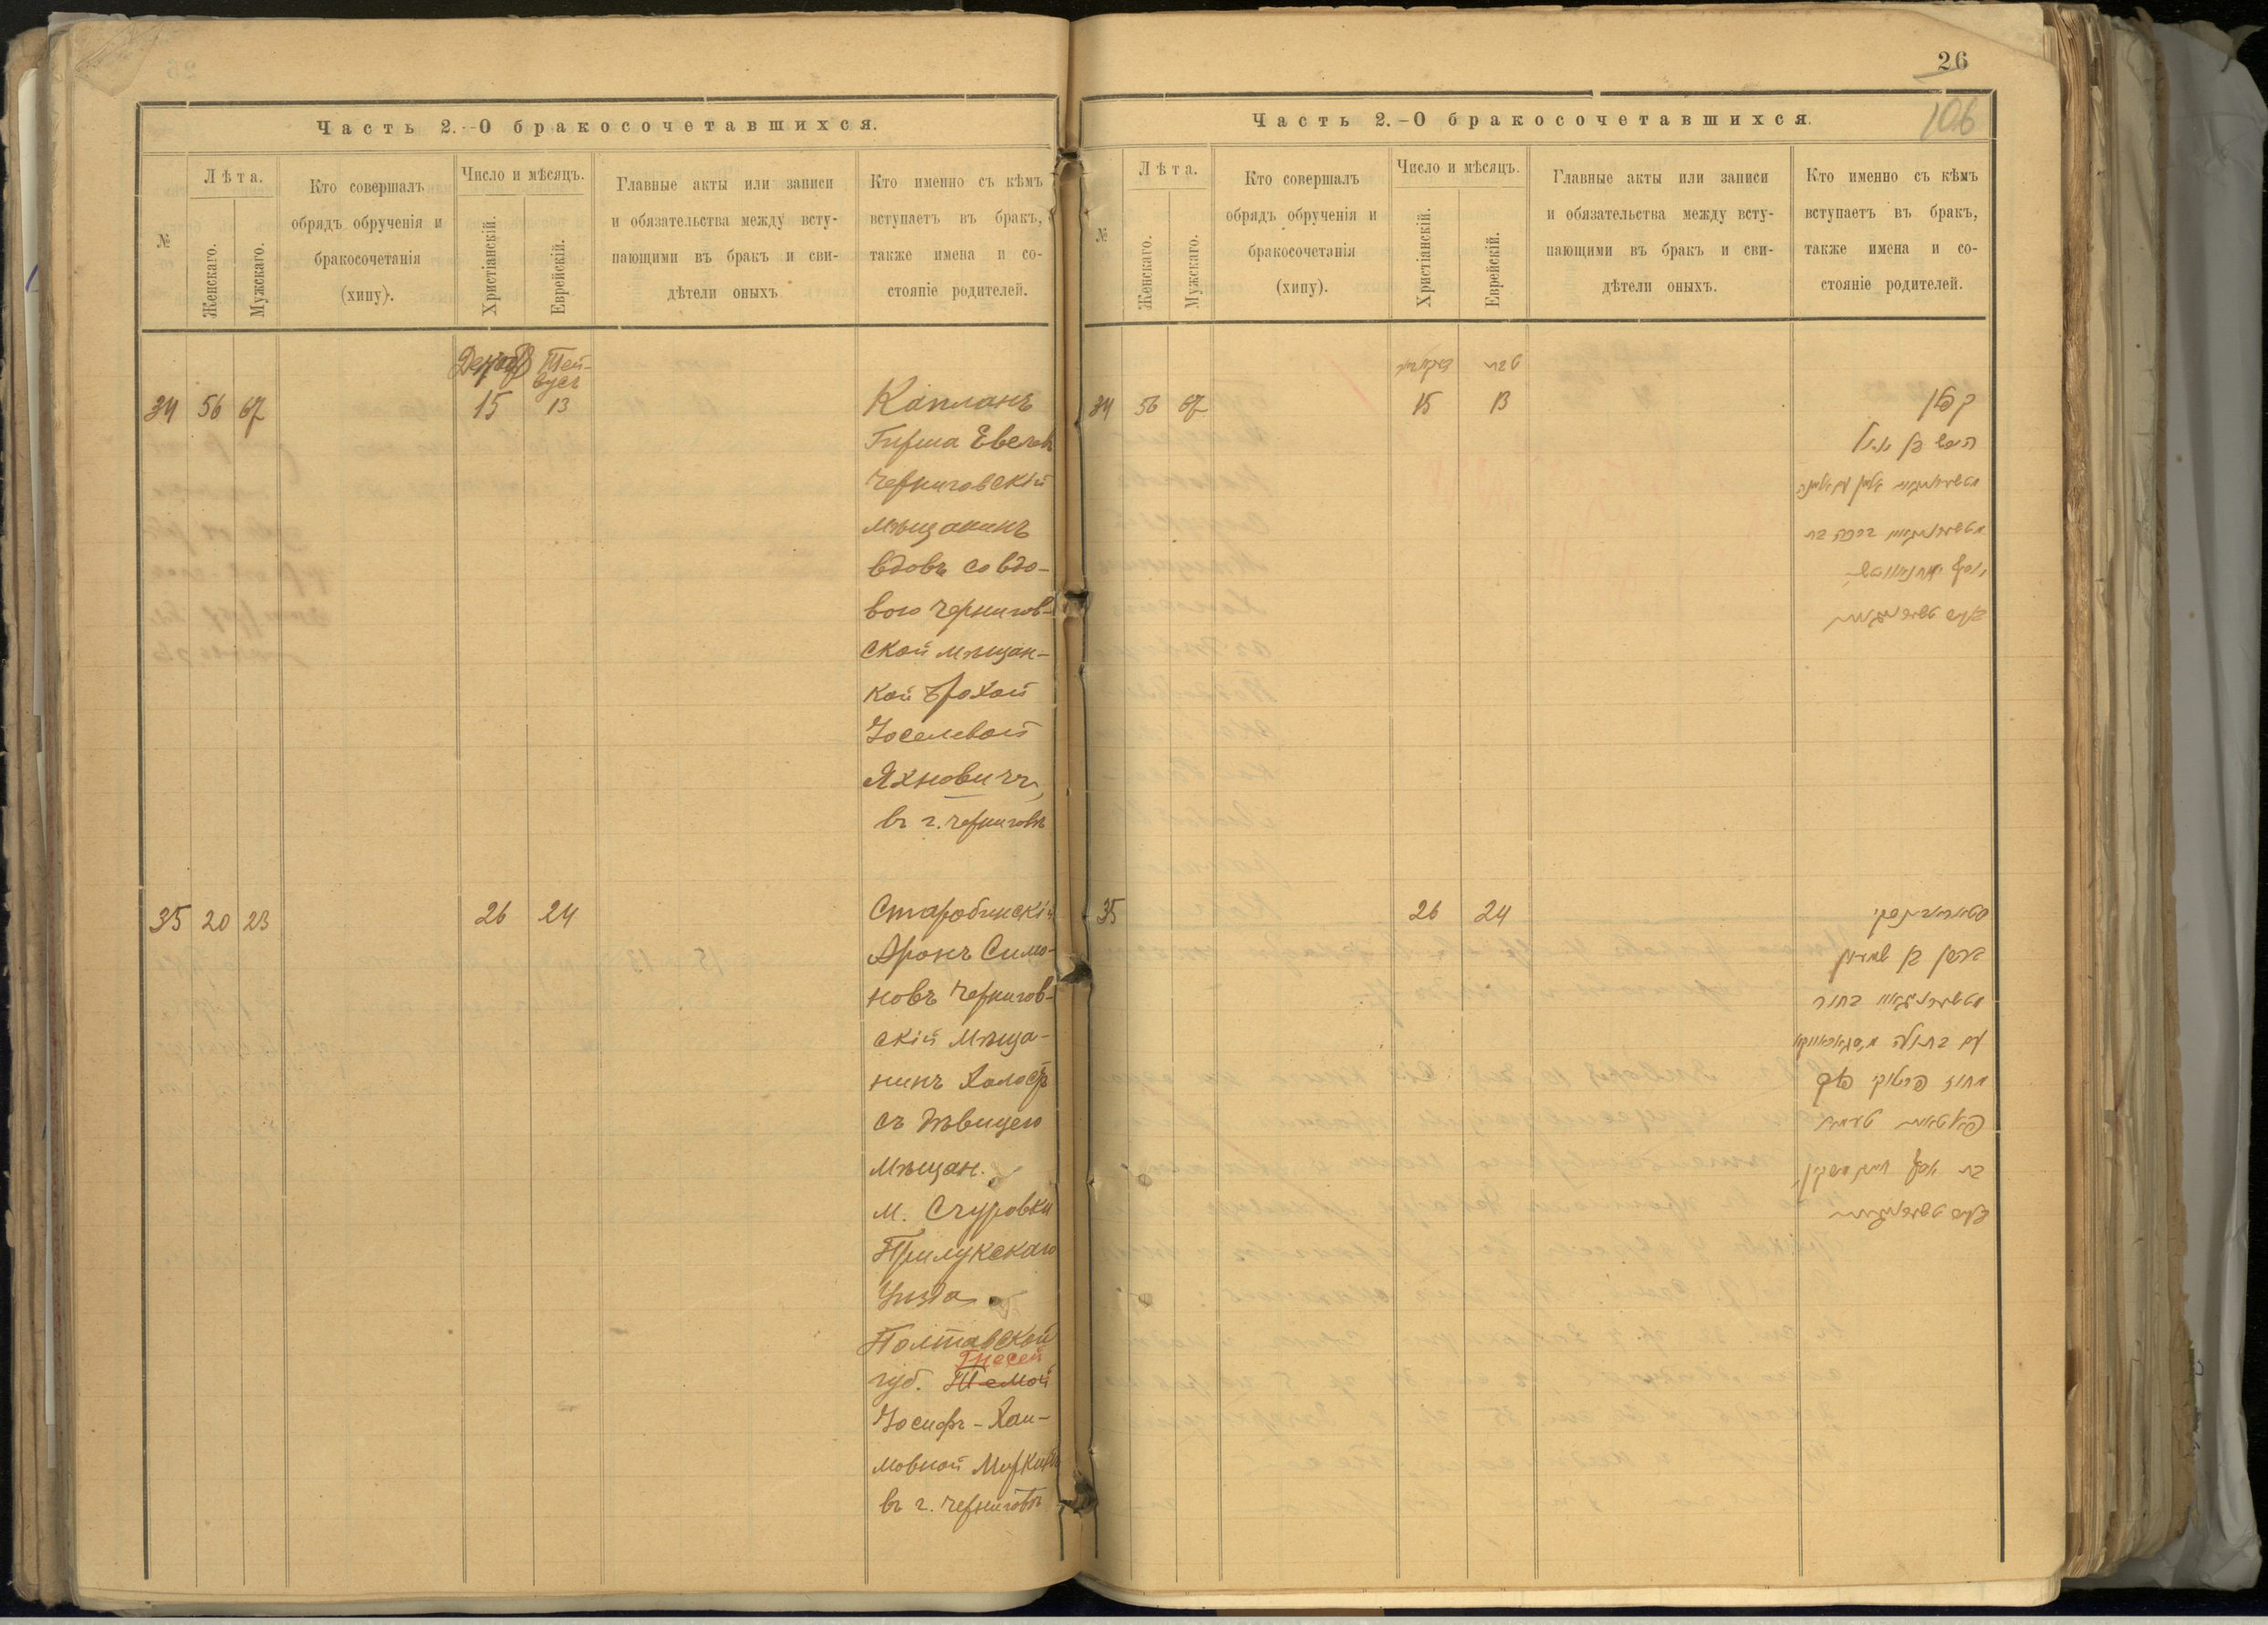 Часть 2.—О бракосочетавшихся.
№
Лѣта.
Женскаго.
Мужскаго.
Кто совершалъ
обрядъ обрученія и
бракосочетанія
(хипу).
Число и мѣсяцъ.
Христіанскій.
Еврейскій.
Главные акты или записи
и обязательства между всту-
пающими въ бракъ и сви-
дѣтели оныхъ
Кто именно съ кѣмъ
вступаетъ въ бракъ,
также имена и со-
стояніе родителей.
Тей-
вусъ
34 56 67 15 13 Капланъ
Гирша Евелевъ
Черниговскій
мѣщанинъ
вдовъ со вдо-
вою Чернигов-
ской мѣщан-
кой Брохой
Іоселевой
Яхновичъ,
въ г. Черниговѣ
35 20 23 26 24 Старобинскій
Аронъ Симо-
новъ Чернигов-
скій мѣща-
нинъ холост
съ дѣвицею
мѣщан.
м. Сгуровки
Прилукскаго
уѣзда
Полтавской
Гнесей
губ. Темой
Іосифъ-Хаи-
мовной
въ г. Черниговѣ
26
106
Часть 2.—О бракосочетавшихся.
№
Лѣта.
Женскаго.
Мужскаго.
Кто совершалъ
обрядъ обрученія и
бракосочетанія
(хипу).
Число и мѣсяцъ.
Христіанскій.
Еврейскій.
Главные акты или записи
и обязательства между всту-
пающими въ бракъ и сви-
дѣтели оныхъ.
Кто именно съ кѣмъ
вступаетъ въ бракъ,
также имена и со-
стояніе родителей.
דעקאבר טבת
34 56 67 15 13 קפלן
הירש בן
אלמן עם אלמנה
ברכה בת
35 26 24 סטאראבינסקי
אהרן בן שמעון
בחור
עם בתולה
מחוז פרילוקי פלך
פאלטאווא
בת יוסף חיים